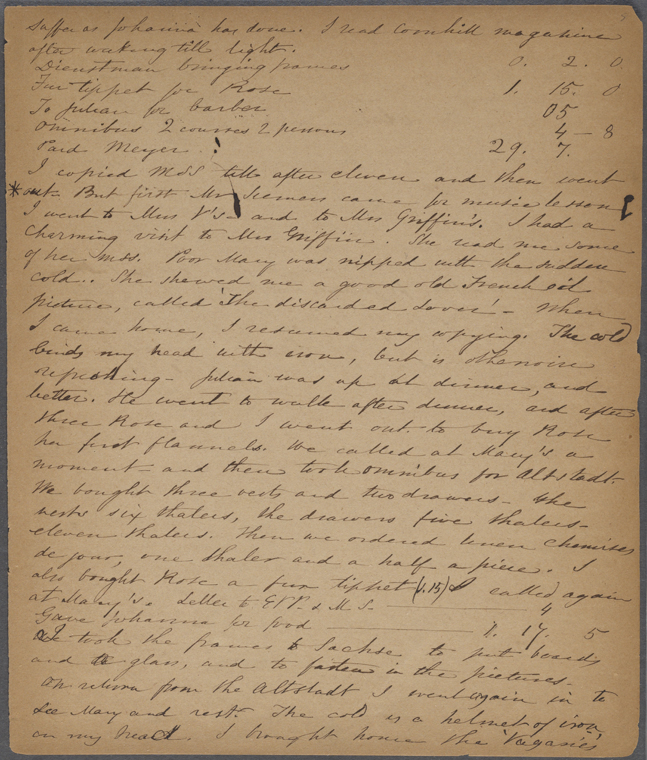 suffer as Johanna has done. I read Cornhill magazine
after waking till light.
Dienstman bringing frames 0. 2. 0
Fur tippet for Rose 1. 15. 0
To Julian for barber 05
Omnibus 2 courses 2 persons 4 — 8
Paid Meyer. 29. 7.
I copied MSS till after eleven and then went
*out— But first Mr Siemens came for music lesson
I went to Miss V's— and to Mrs Griffin's. I had a
charming visit to Mrs Griffin. She read me some
of her mss. Poor Mary was nipped with the sudden
cold. She shewed me a good old French oil
picture, called The discarded Lover!— When
I came home, I resumed my copying. The cold
binds my head with iron, but is otherwise
refreshing— Julian was up at dinner, and
better. He went to walk after dinner, and after
three Rose and I went out to buy Rose
her first flannels. We called at Mary's a
moment— and then took omnibus for Altstadt.
We bought three vests and two drawers— the
vests six thalers, the drawers five thalers—
eleven thalers. Then we ordered linen chemises
de jour, one thaler and a half a piece. I
also bought Rose a fur tippet (1.15) I called again
at Mary's. Letter to E.P.P. & M. S. — 4
Gave Johanna for food — 1. 17. 5
We took the frames to Sachse to put boards
and glass, and to fasten in the pictures—
On return from the Altstadt I went again in to
see Mary and rest. The cold is a helmet of iron,
on my head. I brought home the